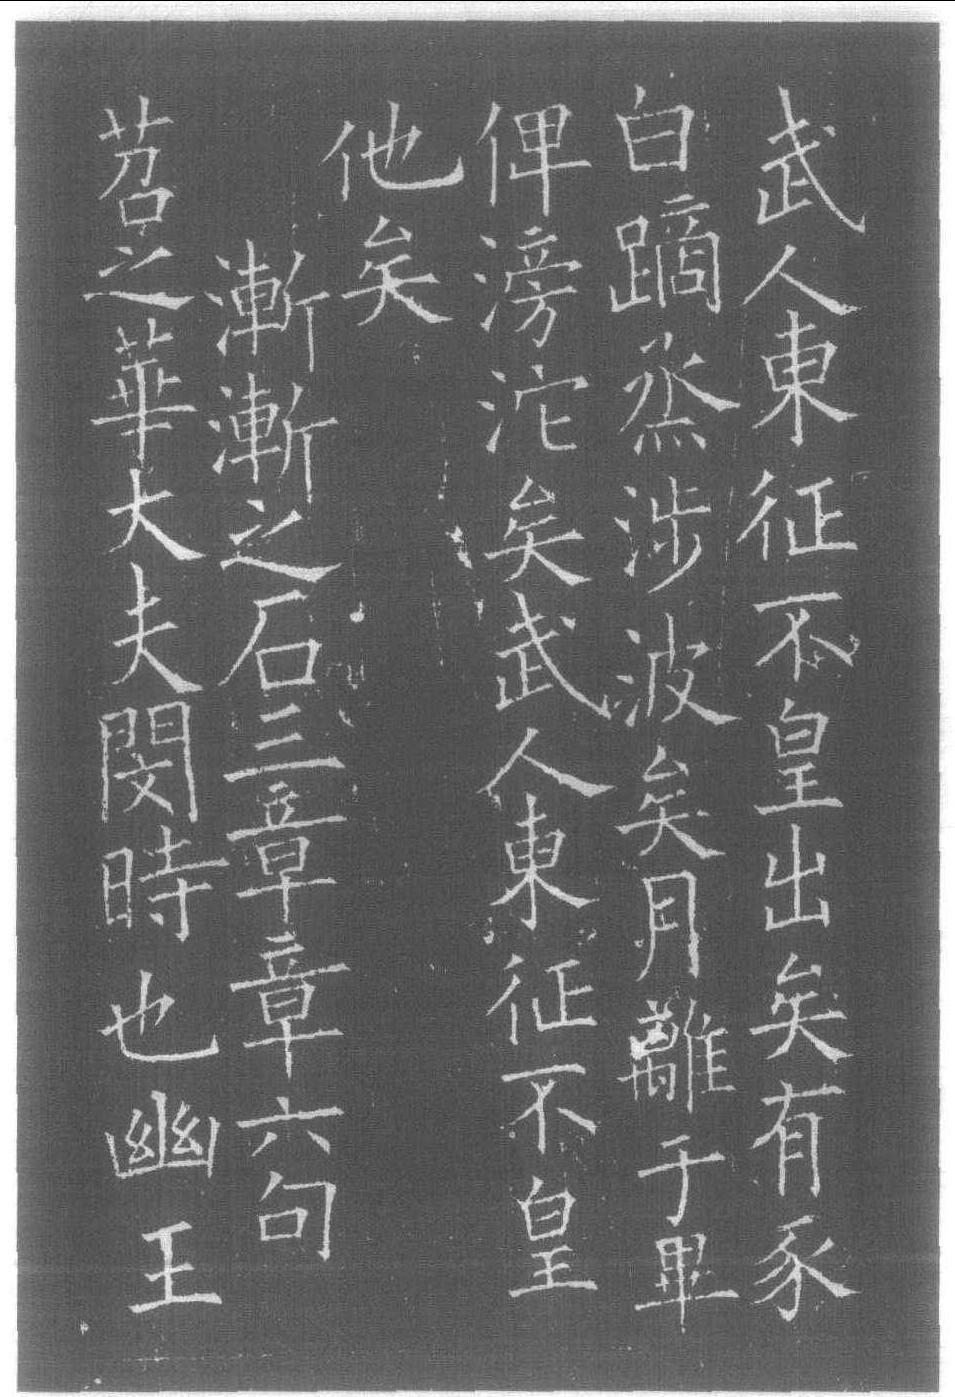 武人東征不皇出矣有豕
白蹢烝涉波矣月離于畢
俾滂沱矣武人東征不皇
他矣
漸漸之石三章章六句
苕之華大夫閔時也幽王